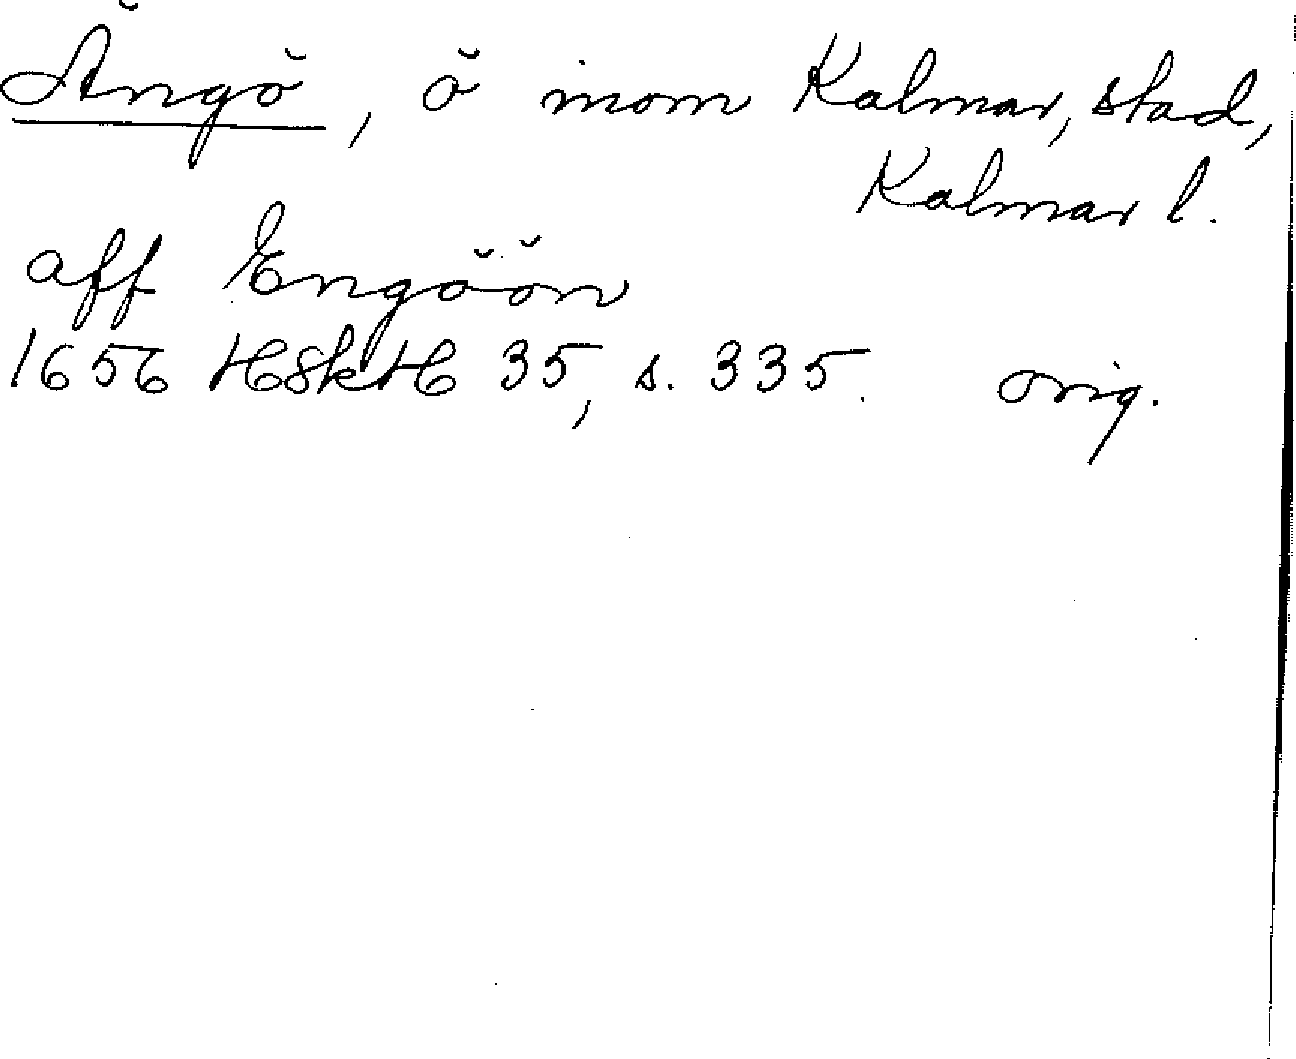 Ängö, ö inom Kalmar, stad,
Kalmar l.
aff Engöön
1656 HSkH 35, s. 335. orig.